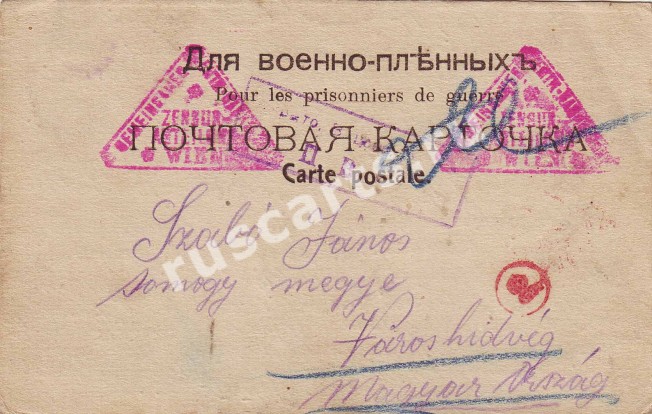 Для военно-плѣнныхъ
Pour les prisonniers de guerre
ПОЧТОВАЯ КАРТОЧКА
Carte postale.
ZENSUR
WIEN
ZENSUR
WIEN
Szabó János
somogy megye
Városhidvég
Magyar Ország
ruscarts.ru